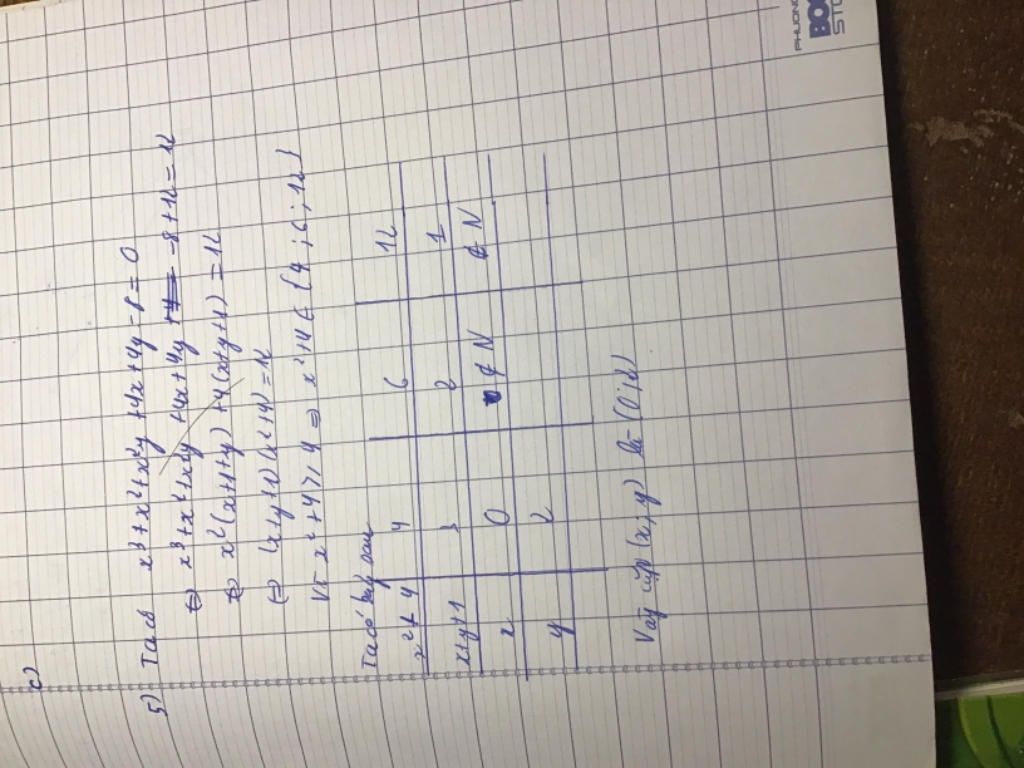 c)
5) Ta có x³ + x² + x²y + 4x + 4y - 8 = 0
⇔ x³ + x² + x²y + 4x + 4y = -8 + 12 = 12
⇔ x²(x+1+y) + 4(x+y+1) = 12
⇔ (x+y+1)(x²+4) = 12
Vì x²+4 ≥ 4 ⇒ x²+4 ∈ {4; 6; 12}
Ta có bảng sau
x²+4 4 6 12
x+y+1 3 2 1
x 0 ∉ N ∉ N
y 2
Vậy cặp (x, y) là (0; 2)
PHUONG
BOO
STO